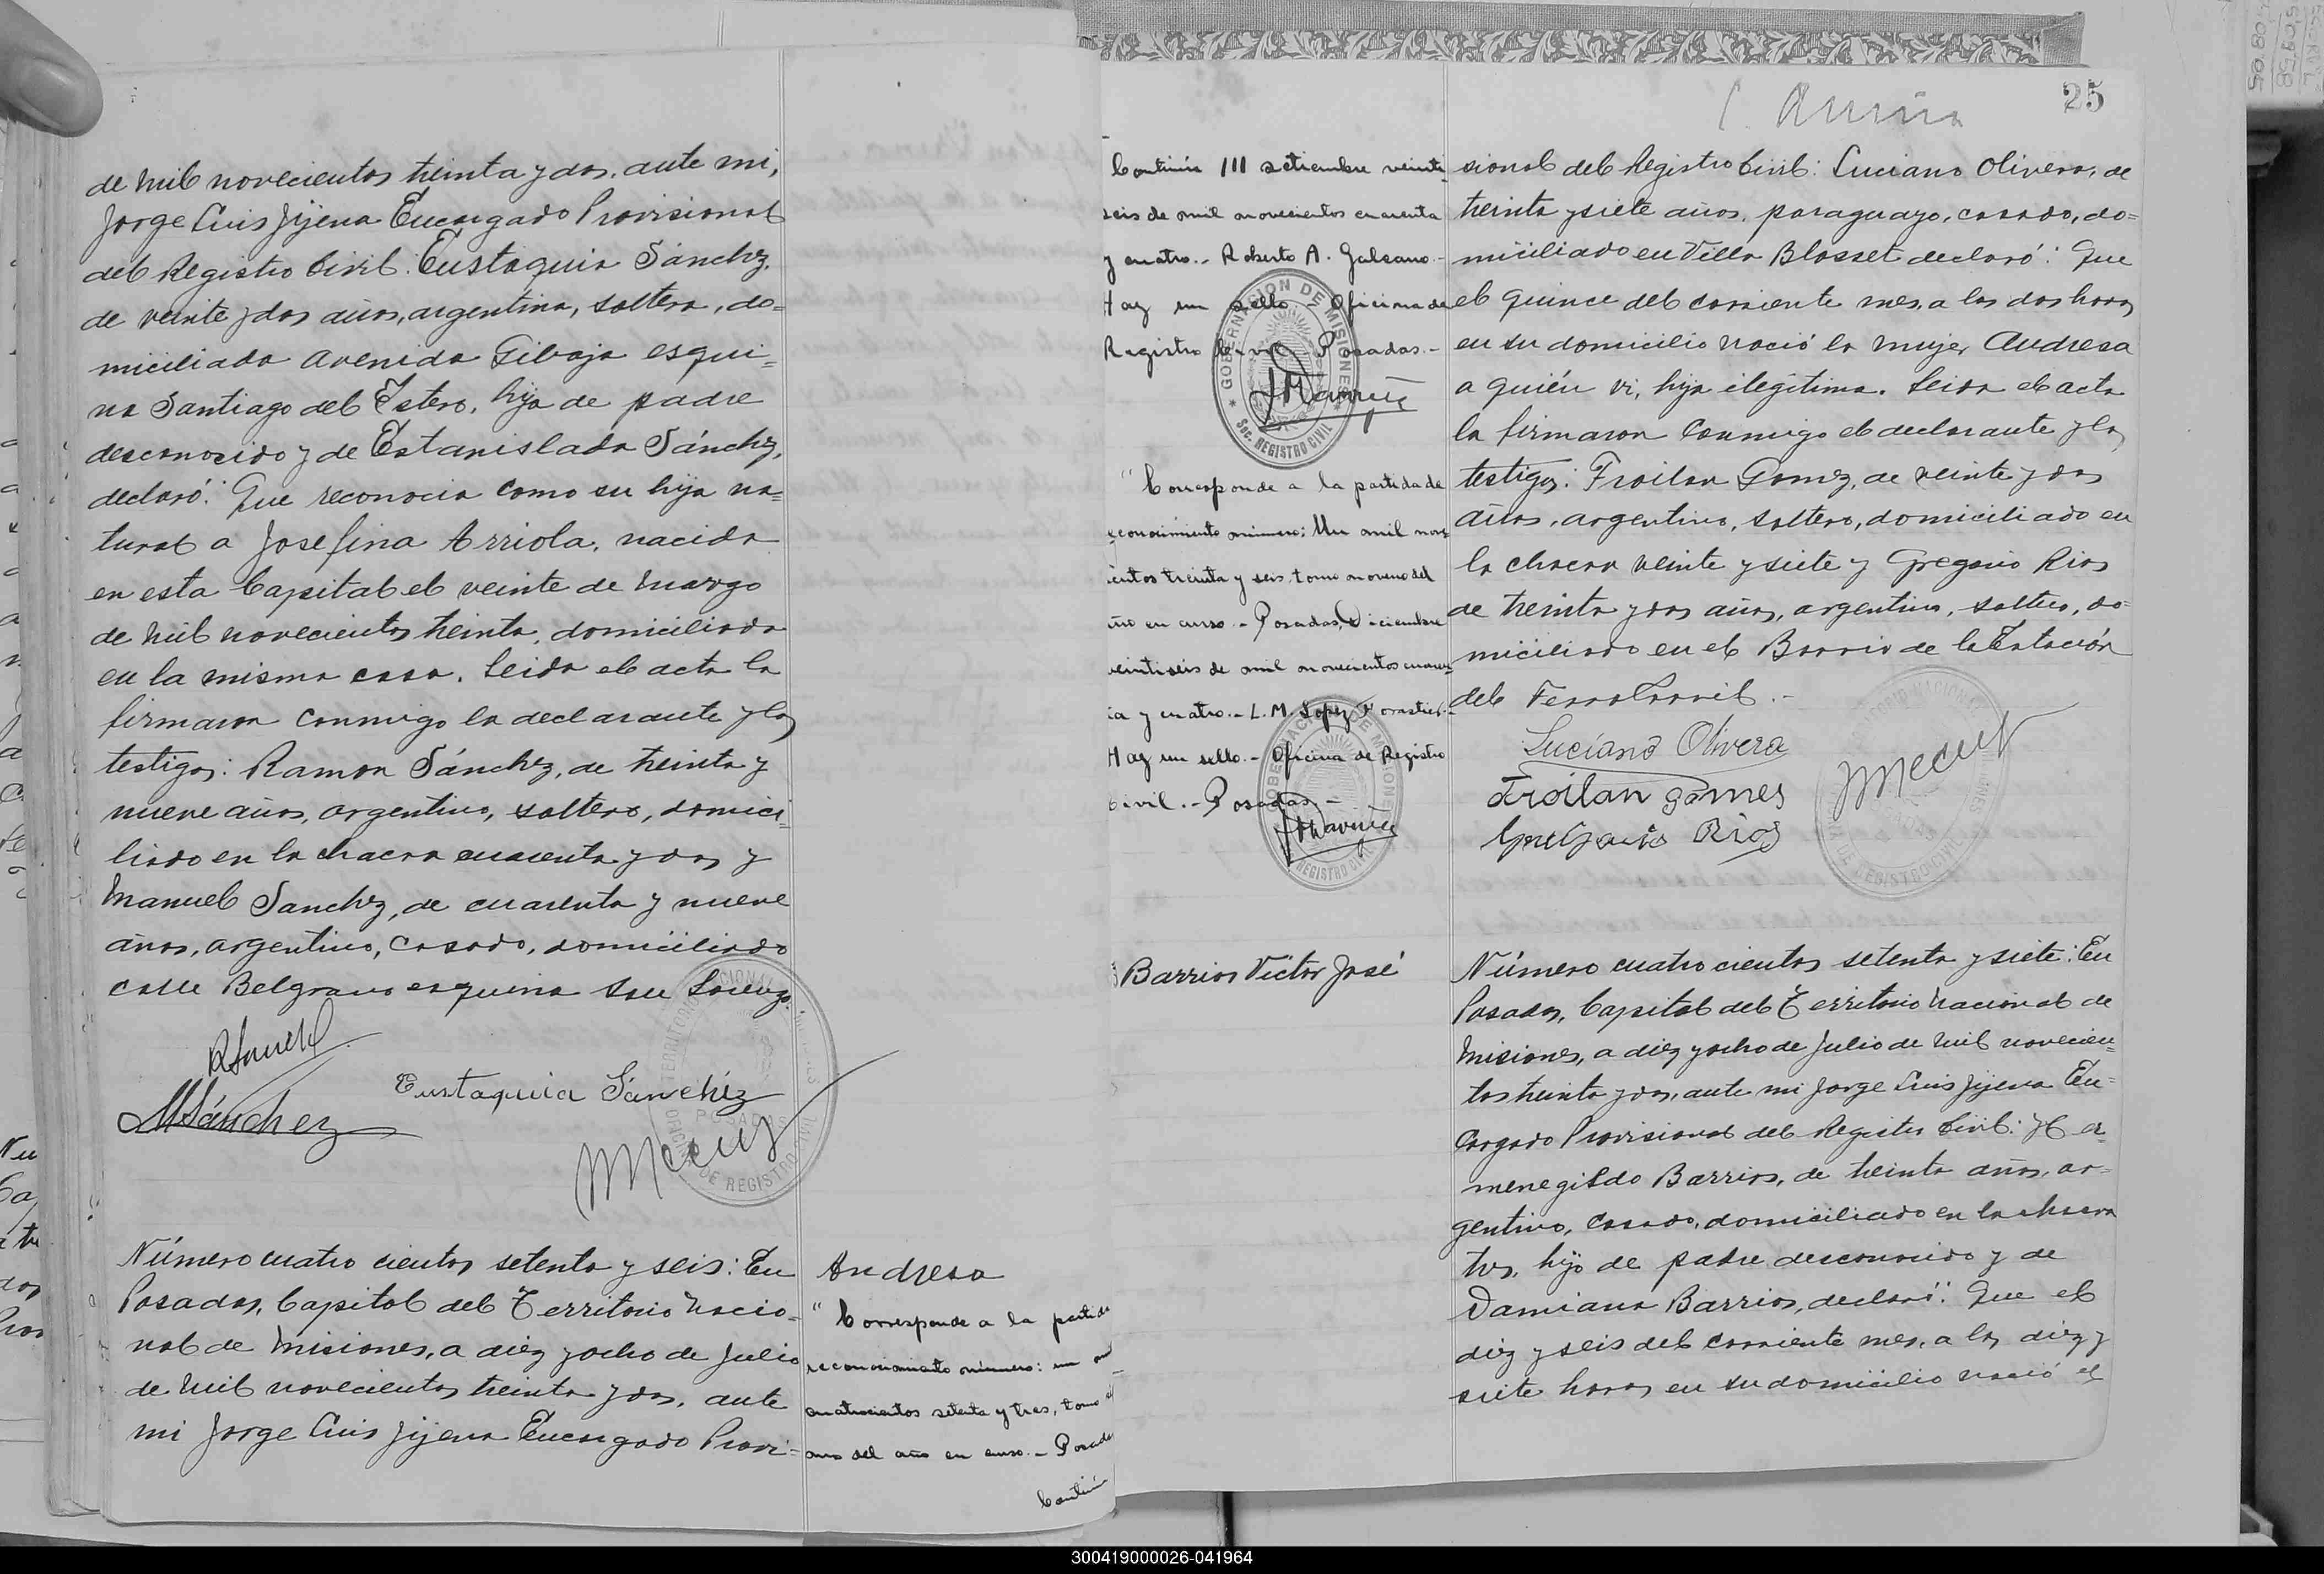 de mil novecientos treinta y dos, ante mi,
Jorge Luis Jijena Encargado Provisional
del Registro Civil: Eustaquia Sánchez,
de veinte y dos años, argentina, soltera, do=
miciliada Avenida Gibaja esqui=
na Santiago del Estero, hija de padre
desconocido y de Estanislada Sánchez,
declaró: Que reconocia como su hija na=
tural a Josefina Arriola, nacida
en esta Capital el veinte de Marzo
de mil novecientos treinta, domiciliada
en la misma casa. Leida el acta la
firmaron conmigo la declarante y los
testigos: Ramon Sánchez, de treinta y
nueve años, argentino, soltero, domici=
liado en la chacra cuarenta y dos y
Manuel Sanchez, de cuarenta y nueve
años, argentino, casado, domiciliado
calle Belgrano esquina San Lorenzo.
Eustaquia Sánchez
MSánchez
Número cuatro cientos setenta y seis: En
Posadas, Capital del Territorio Nacio=
nal de Misiones, a diez y ocho de Julio
de mil novecientos treinta y dos, ante
mi Jorge Luis Jijena Encargado Provi=
Andresa
"Corresponde a la partida
reconocimiento número: un
cuatrocientos setenta y tres, tomo
del año en curso.- Posadas
Continúa
25
Continúa III setiembre veinti
seis de mil novecientos cuarenta
y cuatro.- Roberto A. Galeano.-
Hay un sello Oficina de
Registro Civil - Posadas.-
GOBERNACION DE MISIONES
Sec. REGISTRO CIVIL
"Corresponde a la partida de
econocimiento número: Un mil nove
ientos treinta y seis, tomo noveno del
ño en curso.- Posadas, Diciembre
veintiseis de mil novecientos cuaren
ta y cuatro.- L. M. Lopez
Hay un sello.- Oficina de Registro
Civil.- Posadas.-
sional del Registro Civil: Luciano Olivera, de
treinta y siete años, paraguayo, casado, do=
miciliado en Villa Blosset declaró: Que
el quince del corriente mes, a las dos horas
en su domicilio nació la mujer Andresa
a quién vi, hija ilegitima. Leida el acta
la firmaron conmigo el declarante y los
testigos: Froilan Gomez, de veinte y dos
años, argentino, soltero, domiciliado en
la chacra veinte y siete y Gregorio Rios
de treinta y dos años, argentino, soltero, do=
miciliado en el Barrio de la Estación
del Ferro Carril.-
Luciano Olivera
Froilan gomes
Gregorio Rios
Barrios Victor José
Número cuatro cientos setenta y siete: En
Posadas, Capital del Territorio Nacional de
Misiones, a diez y ocho de Julio de mil novecien=
tos treinta y dos, ante mi Jorge Luis Jijena En=
cargado Provisional del Registro Civil: Her
menegildo Barrios, de treinta años, ar=
gentino, casado, domiciliado en la chacra
tres, hijo de padre desconocido y de
Damiana Barrios, declaró: Que el
diez y seis del corriente mes, a las diez y
siete horas en su domicilio nació el
300419000026-041964